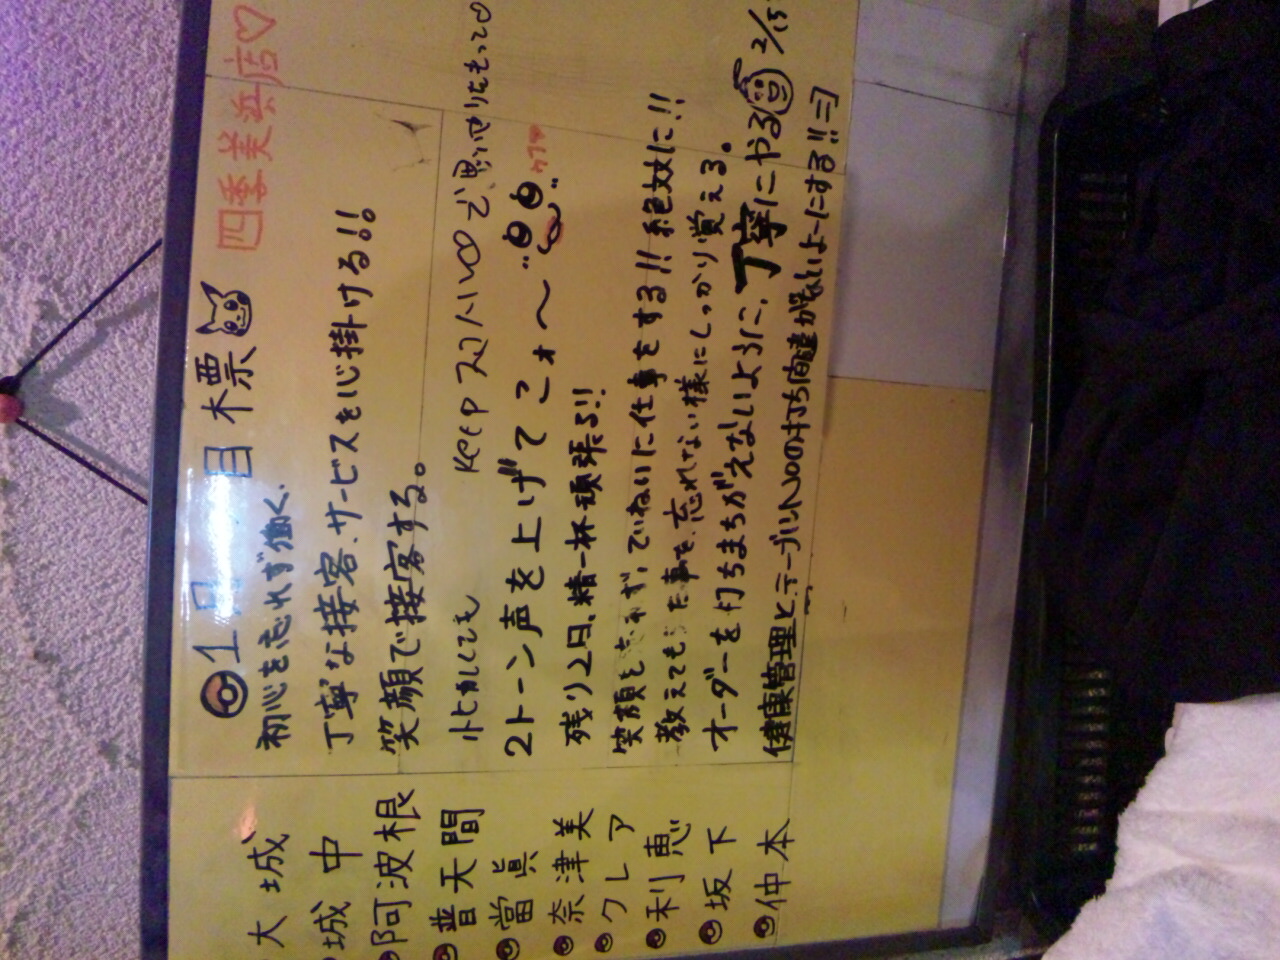 1月 目標 四季美浜店♡
大城 初心を忘れず働く。
城中 丁寧な接客、サービスを心掛ける!!
阿波根 笑顔で接客する。
普天間 KEEP スマイル
當眞 2トーン声を上げてこォ〜
奈津美 残り2日、精一杯頑張る!!
クレア 笑顔を忘れず、ていねいに仕事をする!! 絶対に!!
利恵 教えてもらった事を、忘れない様にしっかり覚える。
坂下 オーダーを打ちまちがえないように、丁寧にやる 2/15
仲本 健康管理とテーブルNoの打ち間違がないよーにする!!